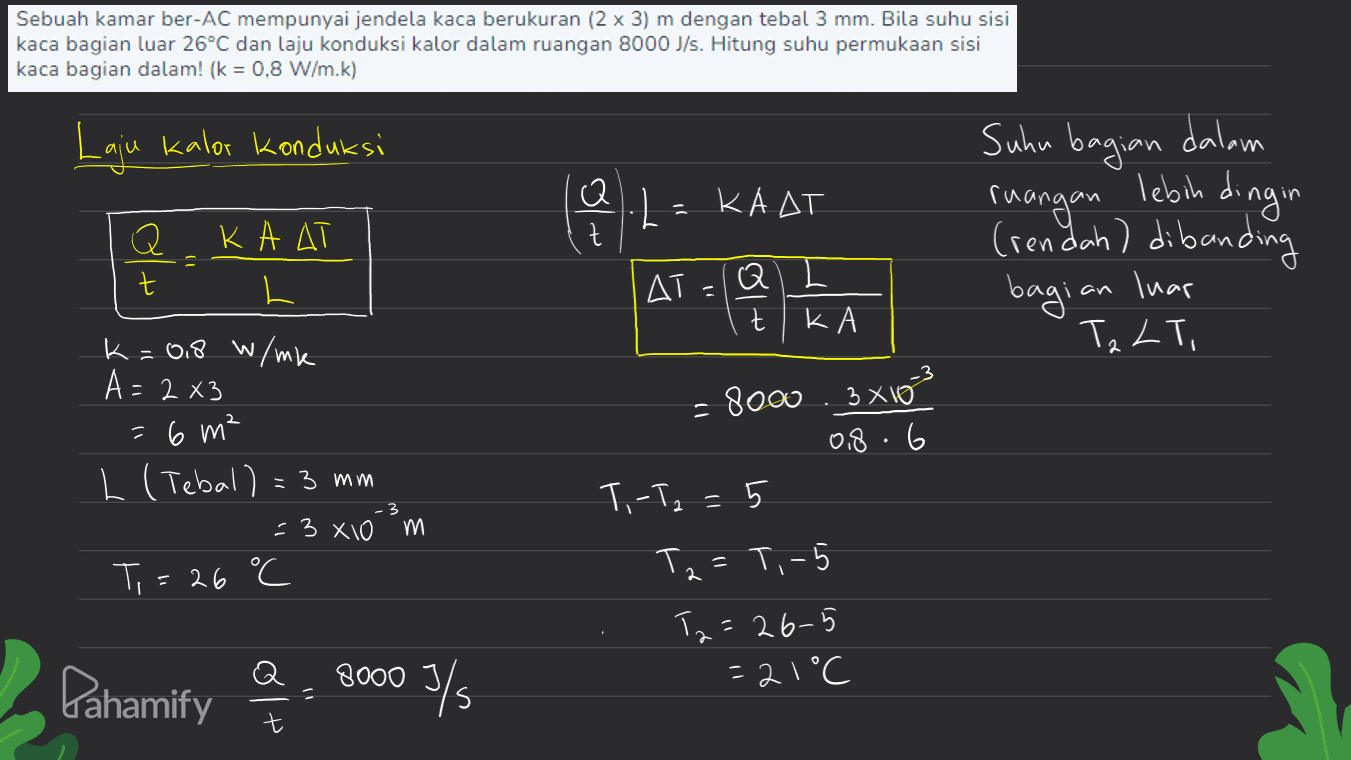 Sebuah kamar ber-AC mempunyai jendela kaca berukuran (2 x 3) m dengan tebal 3 mm. Bila suhu sisi
kaca bagian luar 26°C dan laju konduksi kalor dalam ruangan 8000 J/s. Hitung suhu permukaan sisi
kaca bagian dalam! (k = 0,8 W/m.k)
Laju kalor konduksi
Q/t = K A ΔT / L
K = 0,8 W/mk
A = 2 x 3
= 6 m²
L (Tebal) = 3 mm
= 3 x 10⁻³ m
T₁ = 26 °C
Q/t = 8000 J/s
(Q/t) . L = K A ΔT
ΔT = (Q/t) L / K A
= 8000 . 3 x 10⁻³ / 0,8 . 6
T₁ - T₂ = 5
T₂ = T₁ - 5
T₂ = 26 - 5
= 21 °C
Suhu bagian dalam
ruangan lebih dingin
(rendah) dibanding
bagian luar
T₂ < T₁
Pahamify